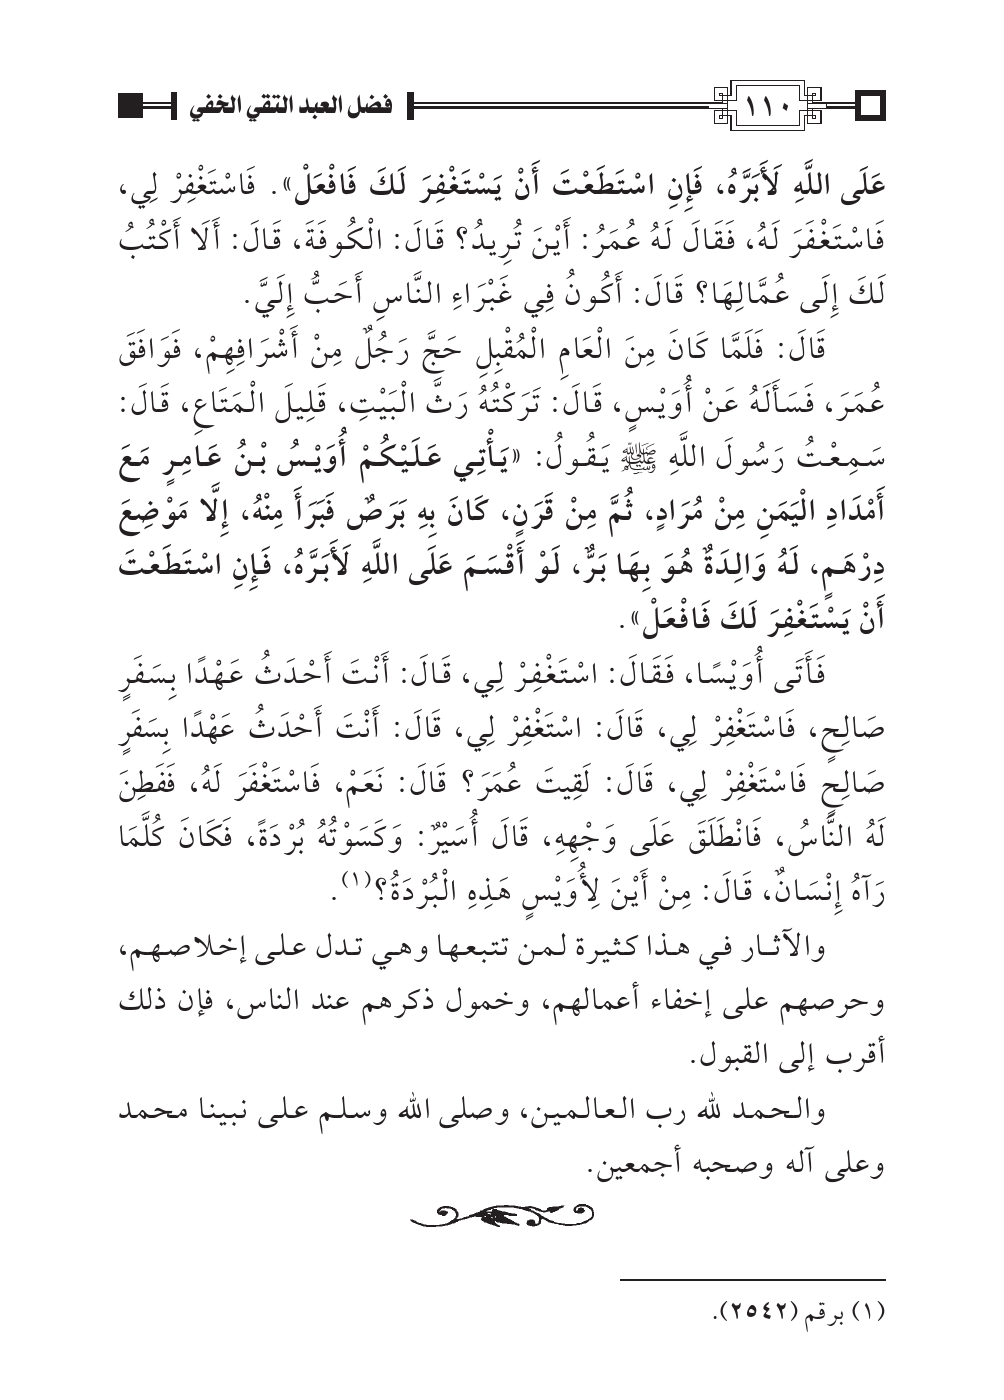 ١١٠ فضل العبد التقي الخفي
عَلَى اللَّهِ لَأَبَرَّهُ، فَإِنِ اسْتَطَعْتَ أَنْ يَسْتَغْفِرَ لَكَ فَافْعَلْ». فَاسْتَغْفِرْ لِي،
فَاسْتَغْفَرَ لَهُ، فَقَالَ لَهُ عُمَرُ: أَيْنَ تُرِيدُ؟ قَالَ: الْكُوفَةَ، قَالَ: أَلَا أَكْتُبُ
لَكَ إِلَى عُمَّالِهَا؟ قَالَ: أَكُونُ فِي غَبْرَاءِ النَّاسِ أَحَبُّ إِلَيَّ.
قَالَ: فَلَمَّا كَانَ مِنَ الْعَامِ الْمُقْبِلِ حَجَّ رَجُلٌ مِنْ أَشْرَافِهِمْ، فَوَافَقَ
عُمَرَ، فَسَأَلَهُ عَنْ أُوَيْسٍ، قَالَ: تَرَكْتُهُ رَثَّ الْبَيْتِ، قَلِيلَ الْمَتَاعِ، قَالَ:
سَمِعْتُ رَسُولَ اللَّهِ ﷺ يَقُولُ: «يَأْتِي عَلَيْكُمْ أُوَيْسُ بْنُ عَامِرٍ مَعَ
أَمْدَادِ الْيَمَنِ مِنْ مُرَادٍ، ثُمَّ مِنْ قَرَنٍ، كَانَ بِهِ بَرَصٌ فَبَرَأَ مِنْهُ، إِلَّا مَوْضِعَ
دِرْهَمٍ، لَهُ وَالِدَةٌ هُوَ بِهَا بَرٌّ، لَوْ أَقْسَمَ عَلَى اللَّهِ لَأَبَرَّهُ، فَإِنِ اسْتَطَعْتَ
أَنْ يَسْتَغْفِرَ لَكَ فَافْعَلْ».
فَأَتَى أُوَيْسًا، فَقَالَ: اسْتَغْفِرْ لِي، قَالَ: أَنْتَ أَحْدَثُ عَهْدًا بِسَفَرٍ
صَالِحٍ، فَاسْتَغْفِرْ لِي، قَالَ: اسْتَغْفِرْ لِي، قَالَ: أَنْتَ أَحْدَثُ عَهْدًا بِسَفَرٍ
صَالِحٍ فَاسْتَغْفِرْ لِي، قَالَ: لَقِيتَ عُمَرَ؟ قَالَ: نَعَمْ، فَاسْتَغْفَرَ لَهُ، فَفَطِنَ
لَهُ النَّاسُ، فَانْطَلَقَ عَلَى وَجْهِهِ، قَالَ أُسَيْرٌ: وَكَسَوْتُهُ بُرْدَةً، فَكَانَ كُلَّمَا
رَآهُ إِنْسَانٌ، قَالَ: مِنْ أَيْنَ لِأُوَيْسٍ هَذِهِ الْبُرْدَةُ؟(١).
والآثار في هذا كثيرة لمن تتبعها وهي تدل على إخلاصهم،
وحرصهم على إخفاء أعمالهم، وخمول ذكرهم عند الناس، فإن ذلك
أقرب إلى القبول.
والحمد لله رب العالمين، وصلى الله وسلم على نبينا محمد
وعلى آله وصحبه أجمعين.
(١) برقم (٢٥٤٢).